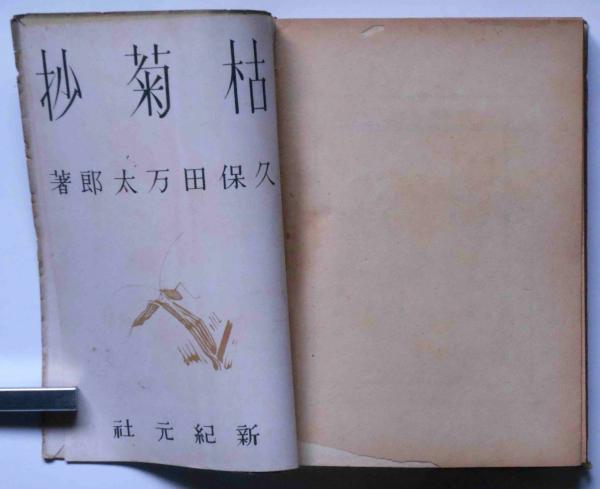 枯菊抄
久保田万太郎著
新紀元社